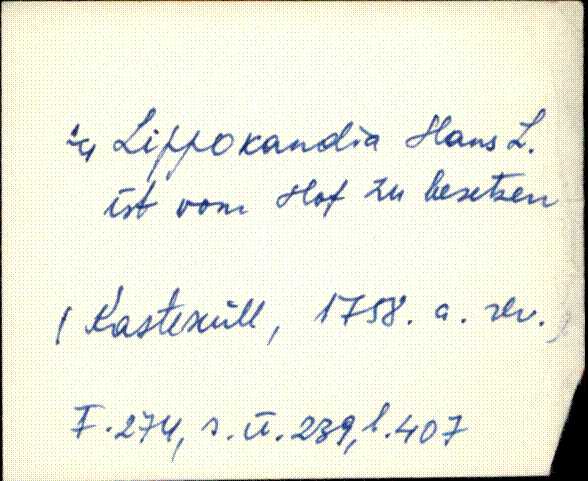 1/4 Lippokandia Hans L.
ist vom Hof zu besetzen
(Kasteküll, 1758. a. rev.)
F. 274, s. ü. 239, l. 407